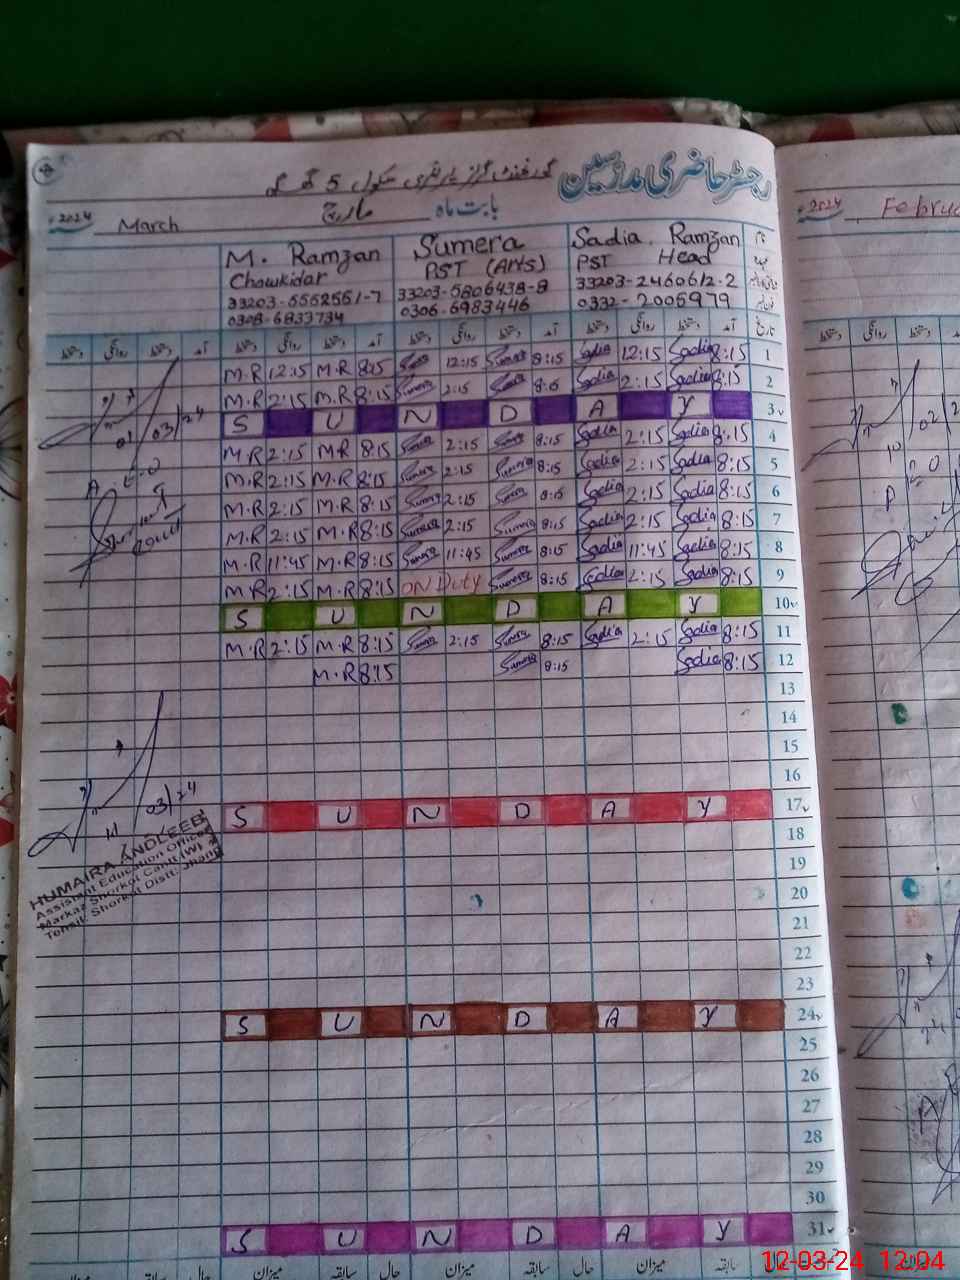 رجسٹر حاضری مدرسین
گورنمنٹ گرلز پرائمری سکول 5 گھگھ
2024ء March بابت ماہ مارچ
2024
M. Ramzan Sumera Sadia. Ramzan نام
Chowkidar PST (Arts) PST Head عہدہ
33203-5562551-7 33203-5806438-8 33203-2460612-2
0308-6833734 0306-6983446 0332-2005979 فون نمبر
دستخط روانگی دستخط آمد دستخط روانگی دستخط آمد دستخط روانگی دستخط آمد دستخط روانگی دستخط آمد تاریخ
M.R 12:15 M.R 8:15 Sumera 12:15 Sumera 8:15 Sadia 12:15 Sadia 8:15 1
M.R 2:15 M.R 8:15 Sumera 2:15 Sumera 8:15 Sadia 2:15 Sadia 8:15 2
S U N D A Y 3
M.R 2:15 M.R 8:15 Sumera 2:15 Sumera 8:15 Sadia 2:15 Sadia 8:15 4
M.R 2:15 M.R 8:15 Sumera 2:15 Sumera 8:15 Sadia 2:15 Sadia 8:15 5
M.R 2:15 M.R 8:15 Sumera 2:15 Sumera 8:15 Sadia 2:15 Sadia 8:15 6
M.R 2:15 M.R 8:15 Sumera 2:15 Sumera 8:15 Sadia 2:15 Sadia 8:15 7
M.R 11:45 M.R 8:15 Sumera 11:45 Sumera 8:15 Sadia 11:45 Sadia 8:15 8
M.R 2:15 M.R 8:15 ON Duty Sumera 8:15 Sadia 2:15 Sadia 8:15 9
S U N D A Y 10
M.R 2:15 M.R 8:15 Sumera 2:15 Sumera 8:15 Sadia 2:15 Sadia 8:15 11
M.R 8:15 Sumera 8:15 Sadia 8:15 12
13
14
15
16
S U N D A Y 17
18
19
20
21
22
23
S U N D A Y 24
25
26
27
28
29
30
S U N D A Y 31
میزان سابقہ حال میزان سابقہ حال میزان سابقہ حال میزان سابقہ حال
02/03/24
A E.O
11/03/24
HUMAIRA ANDLEEB
Assistant Education Officer
Markaz Shorkot Cantt (W)
Tehsil: Shorkot Distt: Jhang
12-03-24 12:04